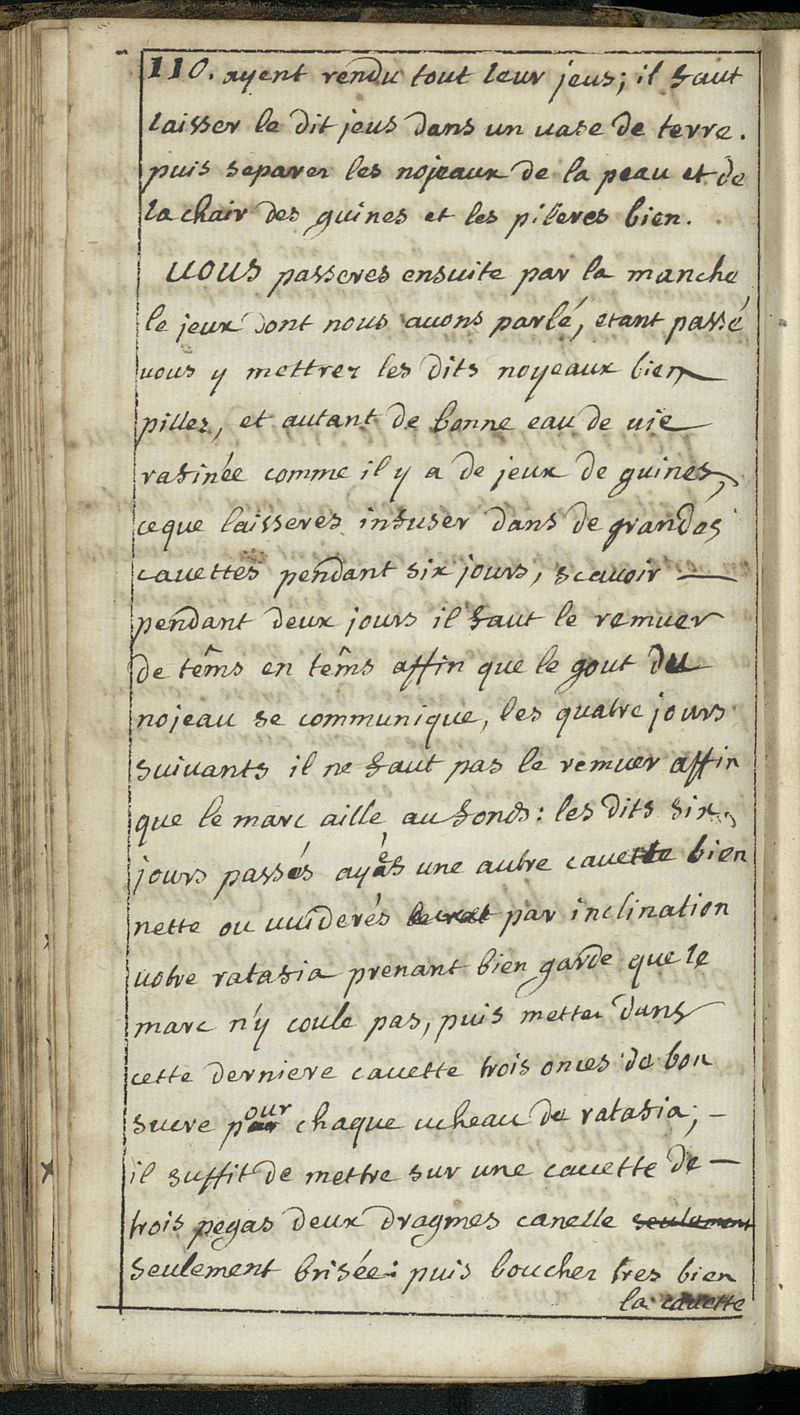 110. ayent rendu tout leur jeus; il faut
laisser le dit jeus dans un vase de terre.
puis separer les nojeaux de la peau et de
la chair des guines et les pileres bien.
vous passeres ensuite par la manche
le jeux dont nous avons parlé, etant passé
vous y mettrez les dits noyeaux bien
pillez, et autant de bonne eau de vie
rafinée comme il y a de jeux de guines,
ceque laisseres infuser dans de grandes
cavettes pendant six jours, scavoir —
pendant deux jours il faut le remuer
de têms en têms affin que le gout du
nojeau se communique, les quatre jours
suivants il ne faut pas le remuer affin
que le marc aille au fonds: les dits six
jours passés ayés une autre cavette bien
nette ou vuiderés par inclination
votre ratafia prenant bien garde que le
marc n'y coule pas, puis metter dans
cette derniere cavette trois onces de bon
sucre pour chaque ucheau de ratafia; —
il suffit de mettre sur une cavette de —
trois pegas deux dragmes canelle seulement
seulement brisée: puis boucher tres bien
la cavette